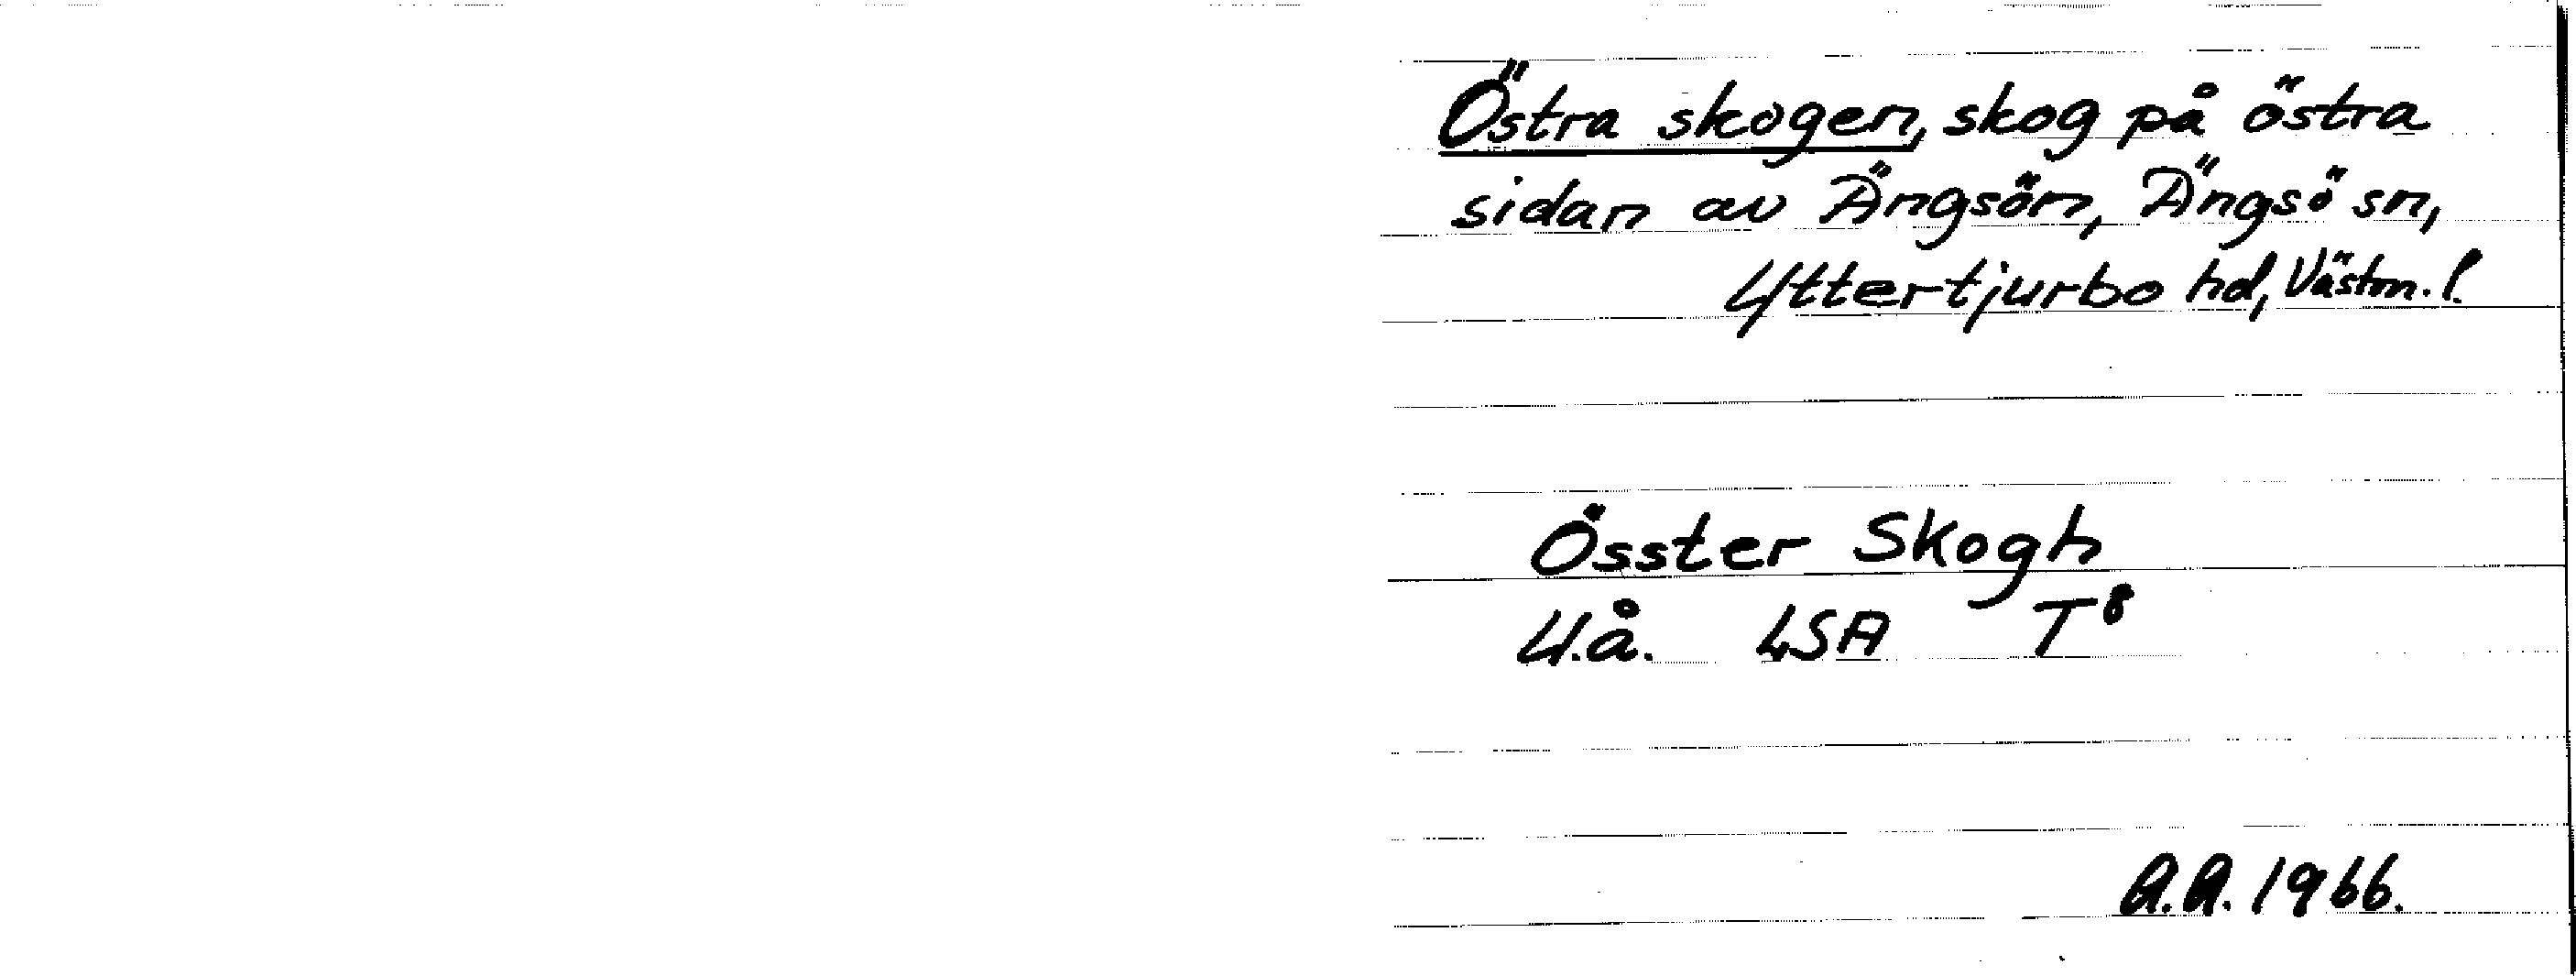 Östra skogen, skog på östra
sidan av Ängsön, Ängsö sn,
Yttertjurbo hd, Västm. l.
Össter Skogh
U.å. LSA T⁸
A.A. 1966.